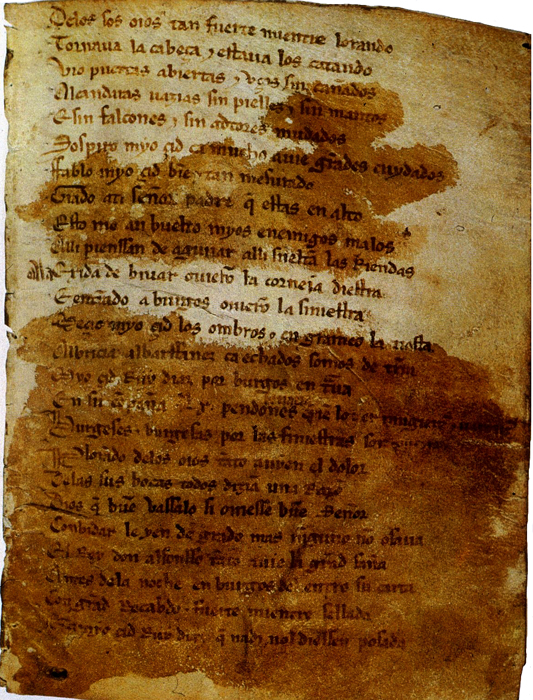 Delos sos oios tan fuerte mientre lorando
Tornava la cabeça, estava los catando
Vio puertas abiertas, vços sin cañados
Alcandaras vazias sin pielles, sin mantos
E sin falcones, sin adtores mudados
Sospiro myo çid ca mucho avie grãdes cuydados
Fablo myo çid bien, tan mesurado
Grado ati señor padre q̃ estas en alto
Esto me an buelto myos enemigos malos
Alli pienssan de aguiiar alli sueltan las Riendas
Ala Exida de bivar oviero la corneja diestra
E entrãdo a burgos oviero la siniestra
Meçio myo çid los ombros, en grameo la tiesta
Albricia albarffanez ca echados somos de tr̃ra
Myo çid Ruy diaz por burgos en trava
En su cõpaña .Lx. pendones
Burgeses, burgesas por las finiestras
Plorando delos oios tãto avyen el dolor
Delas sus bocas todos dizia una Razõ
Dios q̃ buẽ vassalo si oviesse buẽ Señor
Conbidar le yen de grado mas ninguno nõ osava
El Rey don alfonsso tãto avie la grãd saña
Antes dela noche en burgos del entro su carta
Con grãd Recabdo, fuerte mientre sellada
çid Ruy diaz q̃ nadi nol diessen posada